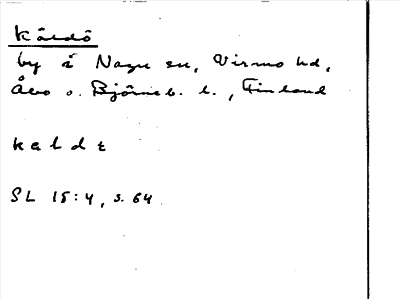 Kåldö
by i Nagu sn, Virmo hd,
Åbo o. Björneb. l., Finland
kaldε
SL 15:4, s. 64